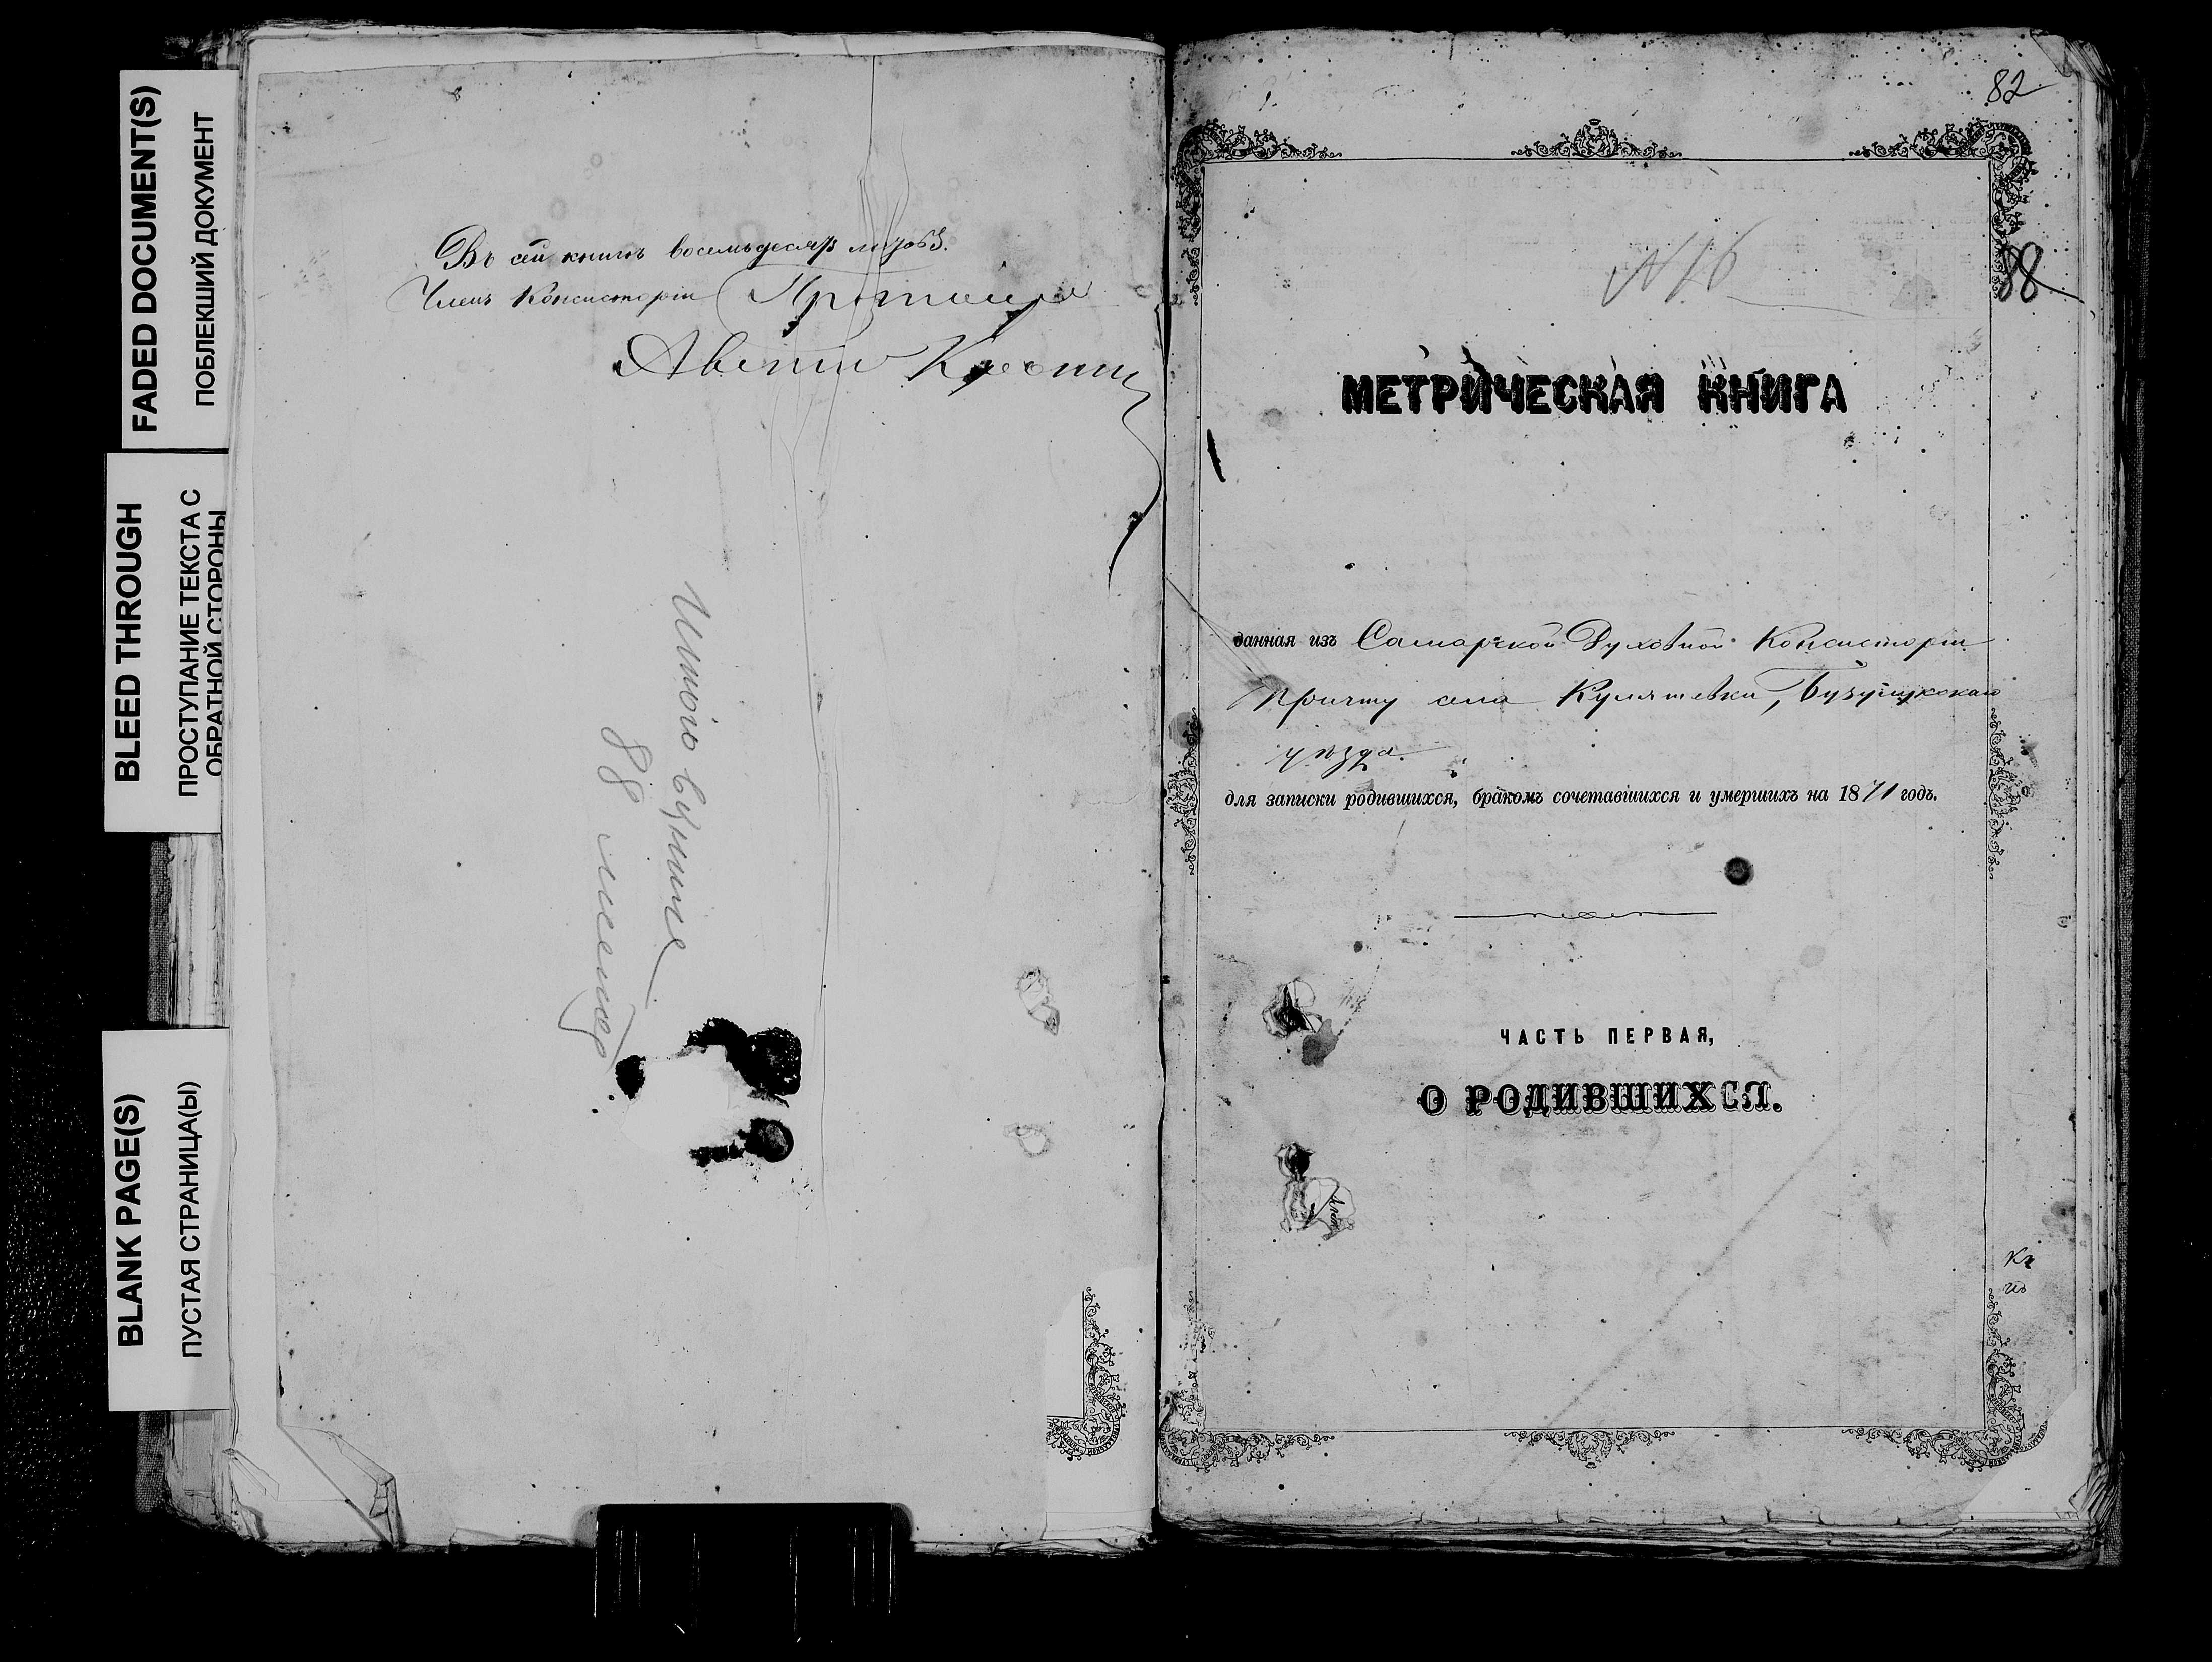 FADED DOCUMENT(S)
ПОБЛЕКШИЙ ДОКУМЕНТ
BLEED THROUGH
ПРОСТУПАНИЕ ТЕКСТА С
ОБРАТНОЙ СТОРОНЫ
BLANK PAGE(S)
ПУСТАЯ СТРАНИЦА(Ы)
Въ сей книгѣ восемьдесятъ листовъ.
Членъ Консисторіи
88
82
N 16
88
МЕТРИЧЕСКАЯ КНИГА
данная изъ Самарской Духовной Консисторіи
Причту села Бузулукскаго
уѣзда.
для записки родившихся, бракомъ сочетавшихся и умершихъ на 1871 годъ.
ЧАСТЬ ПЕРВАЯ,
О РОДИВШИХСЯ.